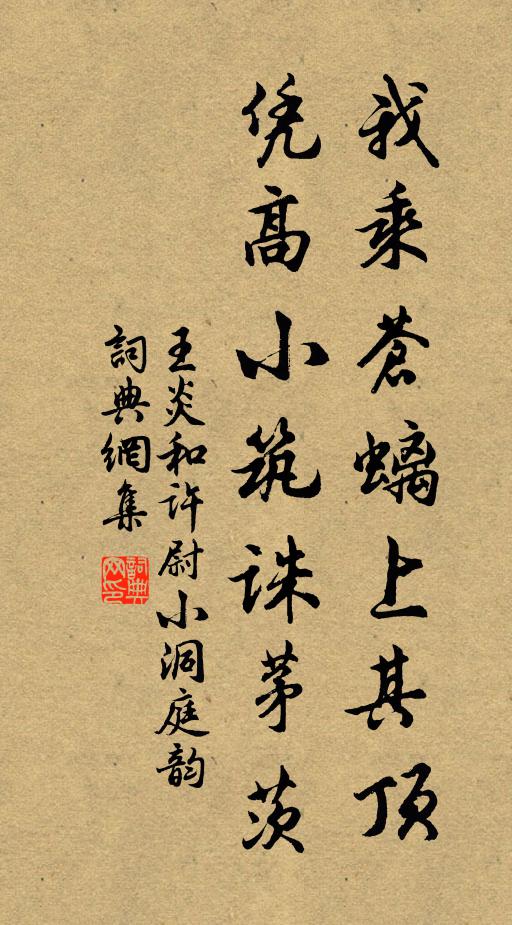 我乘苍螭上其顶
凭高小筑诛茅茨
王炎和许尉小洞庭韵
詞典網集
詞典网印